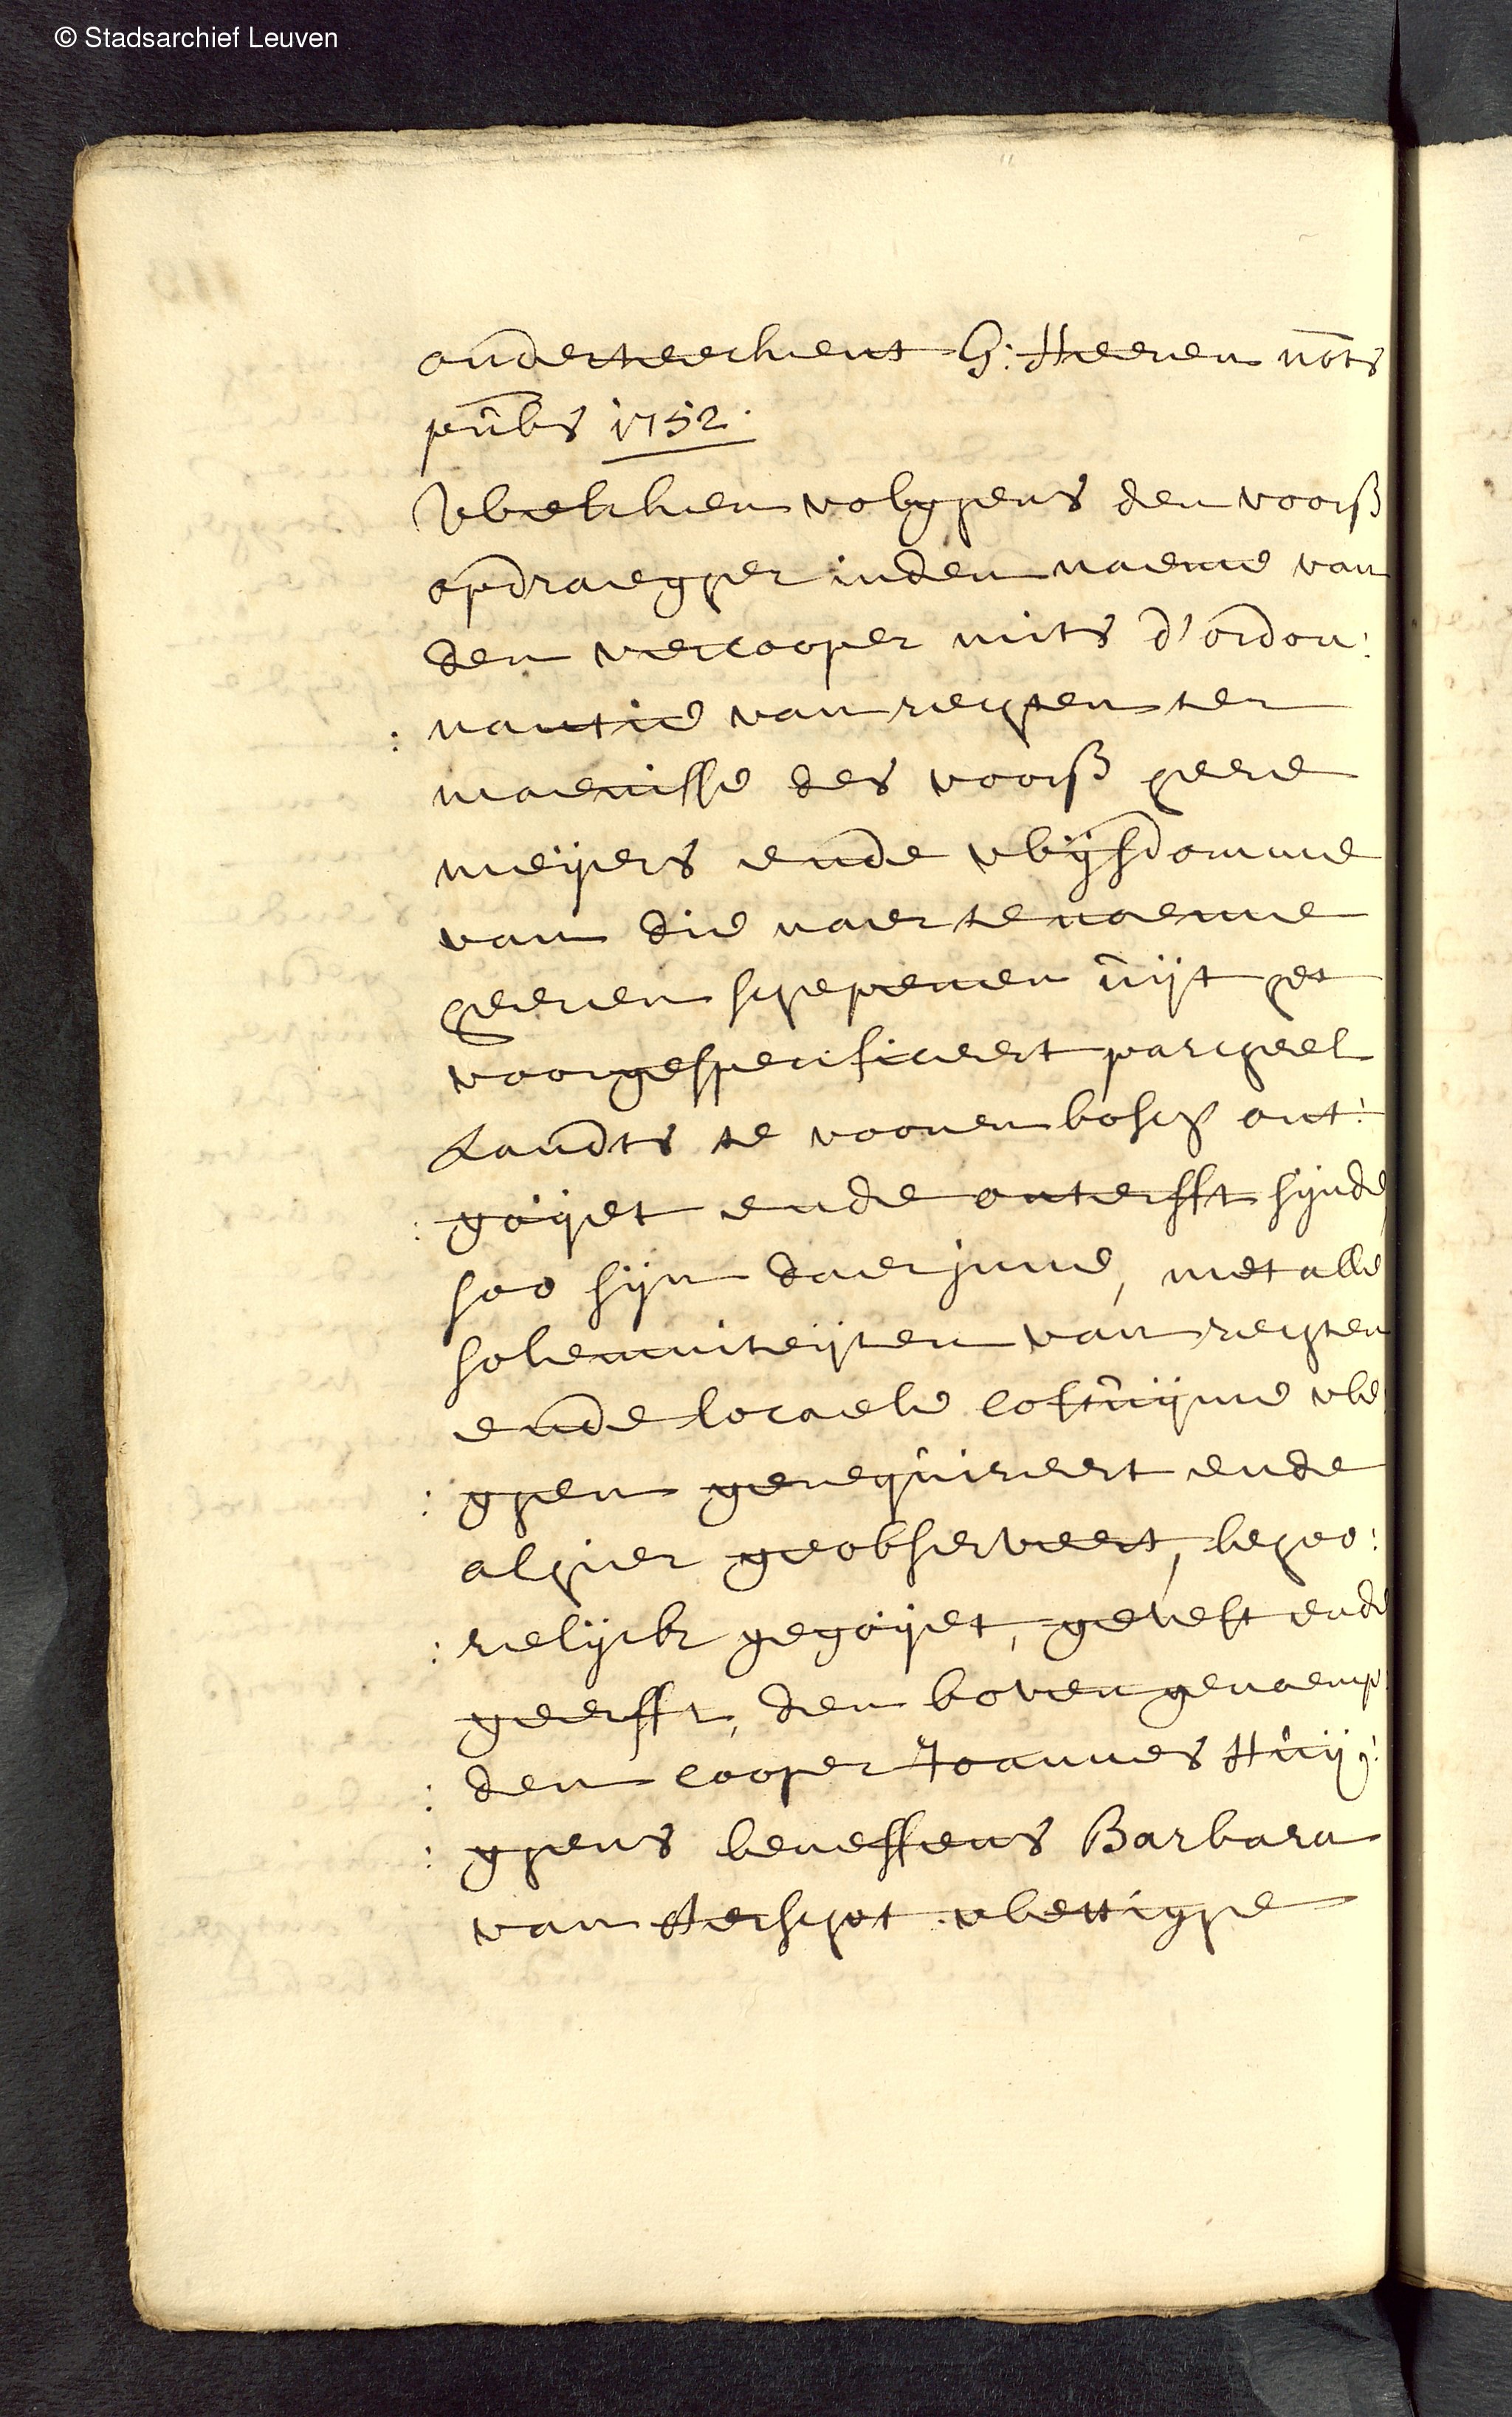 © Stadsarchief Leuven
onderteeckent G: Heeren nots
pubs 1752.
Welcken volghens den voorß
opdraegher inden naeme van
den vercooper mits d'ordon:
: nantie van rechten ter
maenisse des voorß heere
meijers ende wijsdomme
van die naer te noeme
heeren schepenen uijt het
voorgespecificeert parcheel
Landts te roonenbosch ont:
: goijet ende onterfft sijnde
soo sijn daerinne, met alle
solemniteijten van rechten
ende locaele costuijme we
: ghen gerequireert ende
alhier geobserveert, behoo:
: relijck gegoijet, gevest ende
geerfft, den bovengenoemp:
: den cooper Joannes Huij:
: ghens beneffens Barbara
van Aerschot wettighe